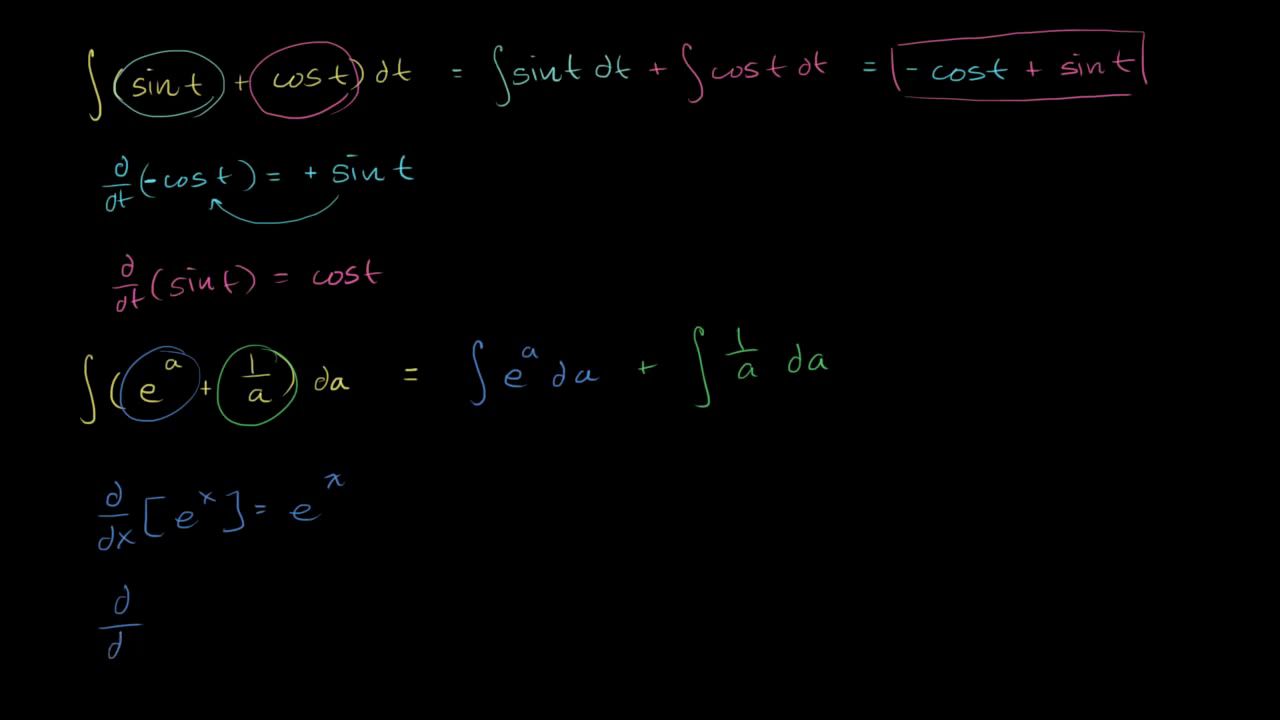 ∫ (sin t + cos t) dt = ∫ sin t dt + ∫ cos t dt = - cos t + sin t
d/dt (-cos t) = + sin t
d/dt (sin t) = cos t
∫ (e^a + 1/a) da = ∫ e^a da + ∫ 1/a da
d/dx [e^x] = e^x
d/d